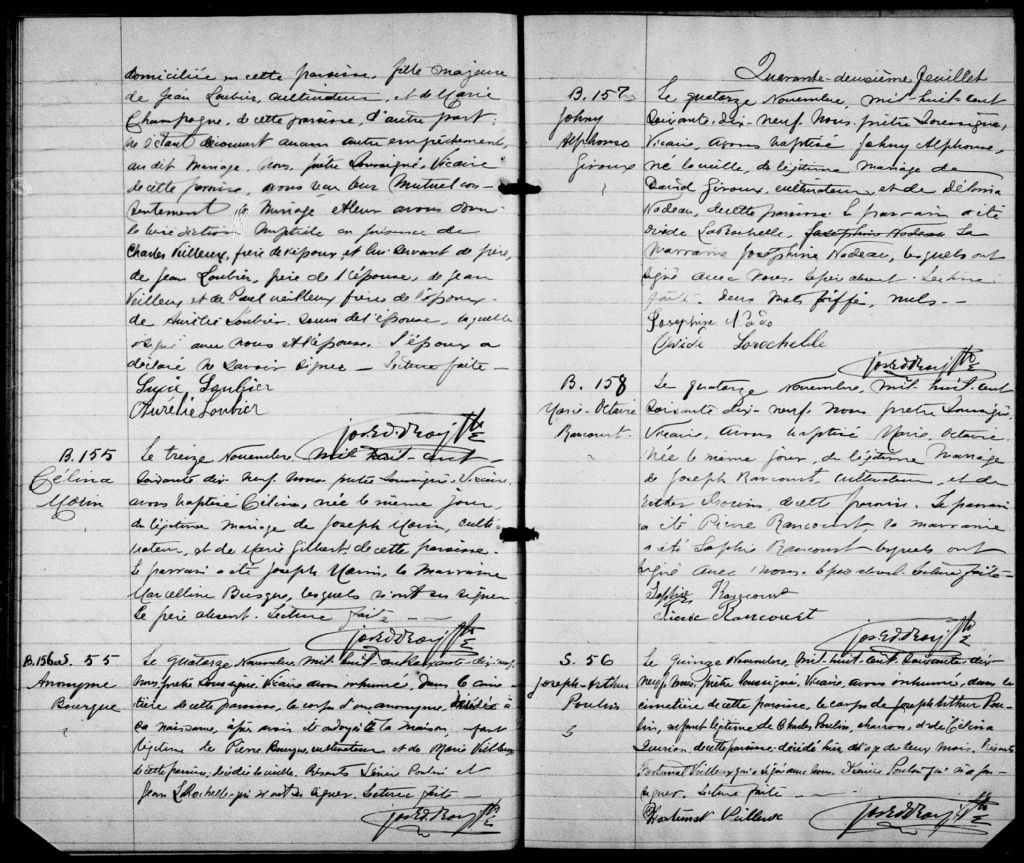 domiciliée en cette paroisse, fille majeure
de Jean Loubier, cultivateur, et de Marie
Champagne, de cette paroisse, d'autre part;
ne s'étant découvert aucun autre empêchement,
au dit mariage. Nous, prêtre soussigné, Vicaire
de cette paroisse, avons reçu leur mutuel con-
sentement de mariage et leur avons donné
la bénédiction nuptiale en présence de
Charles Veilleux, frère de l'époux et lui servant de père,
de Jean Loubier, père de l'épouse, de Jean
Veilleux et de Paul veilleux frères de l'époux.
de Aurélie Loubier, soeur de l'épouse, laquelle
a signé avec nous et l'épouse. L'époux a
déclaré ne savoir signer — Lecture faite —
Aurélie Loubier
Jos. Ed. Roy Ptre
B. 155
Célina
Morin
Le treize Novembre, mil huit cent
soixante dix neuf, nous prêtre soussigné, Vicaire,
avons baptisé Célina, née le même jour,
du légitime mariage de Joseph Morin, culti-
vateur, et de Marie Gilbert, de cette paroisse.
Le parrain a été Joseph Morin, la marraine
Marcelline Busque, lesquels n'ont su signer.
Le père absent. Lecture faite — —
Jos. Ed. Roy Ptre
B. 156 et S. 55
Anonyme
Bourque
Le quatorze Novembre, mil huit cent soixante dix-neuf,
nous, prêtre soussigné, Vicaire avons inhumé, dans le cime
tière de cette paroisse, le corps d'un anonyme, décédé à
sa naissance, après avoir été ondoyé à la maison, enfant
légitime de Pierre Bourque, cultivateur et de Marie Veilleux
de cette paroisse, décédé la veille. Présents Poulin et
Jean LaRochelle qui n'ont su signer. Lecture faite —
Jos. Ed. Roy Ptre
Quarante-deuxième feuillet
B. 157
Johny
Alphonse
Giroux
Le quatorze Novembre, mil-huit-cent
soixante-dix-neuf, Nous, prêtre soussigné,
Vicaire, avons baptisé Johny Alphonse,
né la veille, du légitime mariage de
David Giroux, cultivateur, et de
Nadeau, de cette paroisse. Le parrain a été
Ovide LaRochelle, Josephine Nadeau La
marraine Joséphine Nadeau, lesquels ont
signé avec Nous. Le père absent. Lecture
faite. Deux mots biffés, nuls. —
Josephine Nado
Ovide Larochelle
Jos. Ed. Roy Ptre
B. 158
Marie-Octavie
Rancourt
Le quatorze Novembre, mil-huit-cent
soixante dix-neuf, nous prêtre soussigné,
Vicaire, avons baptisé Marie-Octavie
née le même jour, du légitime mariage
de Joseph Rancourt, cultivateur, et de
Esther Drouin, de cette paroisse. Le parrain
a été Pierre Rancourt la marraine
a été Sophie Rancourt lesquels ont
signé avec Nous. Le père absent. Lecture faite —
Sophie Rancourt
Pierre Rancourt
Jos. Ed. Roy Ptre
S. 56
Joseph-Arthur
Poulin
5
Le Quinze Novembre, mil-huit-cent soixante-dix-
neuf, Nous, prêtre soussigné, Vicaire, avons inhumé, dans le
cimetière de cette paroisse, le corps de Joseph Arthur Pou-
lin, enfant légitime de Charles Poulin, charron, et de Célina
de cette paroisse, décédé hier à l'age de deux mois. Présents
Fortunat Veilleux qui a signé avec nous. Poulin qui n'a su
signer. Lecture faite — —
Fortunat Veilleux
Jos. Ed. Roy Ptre